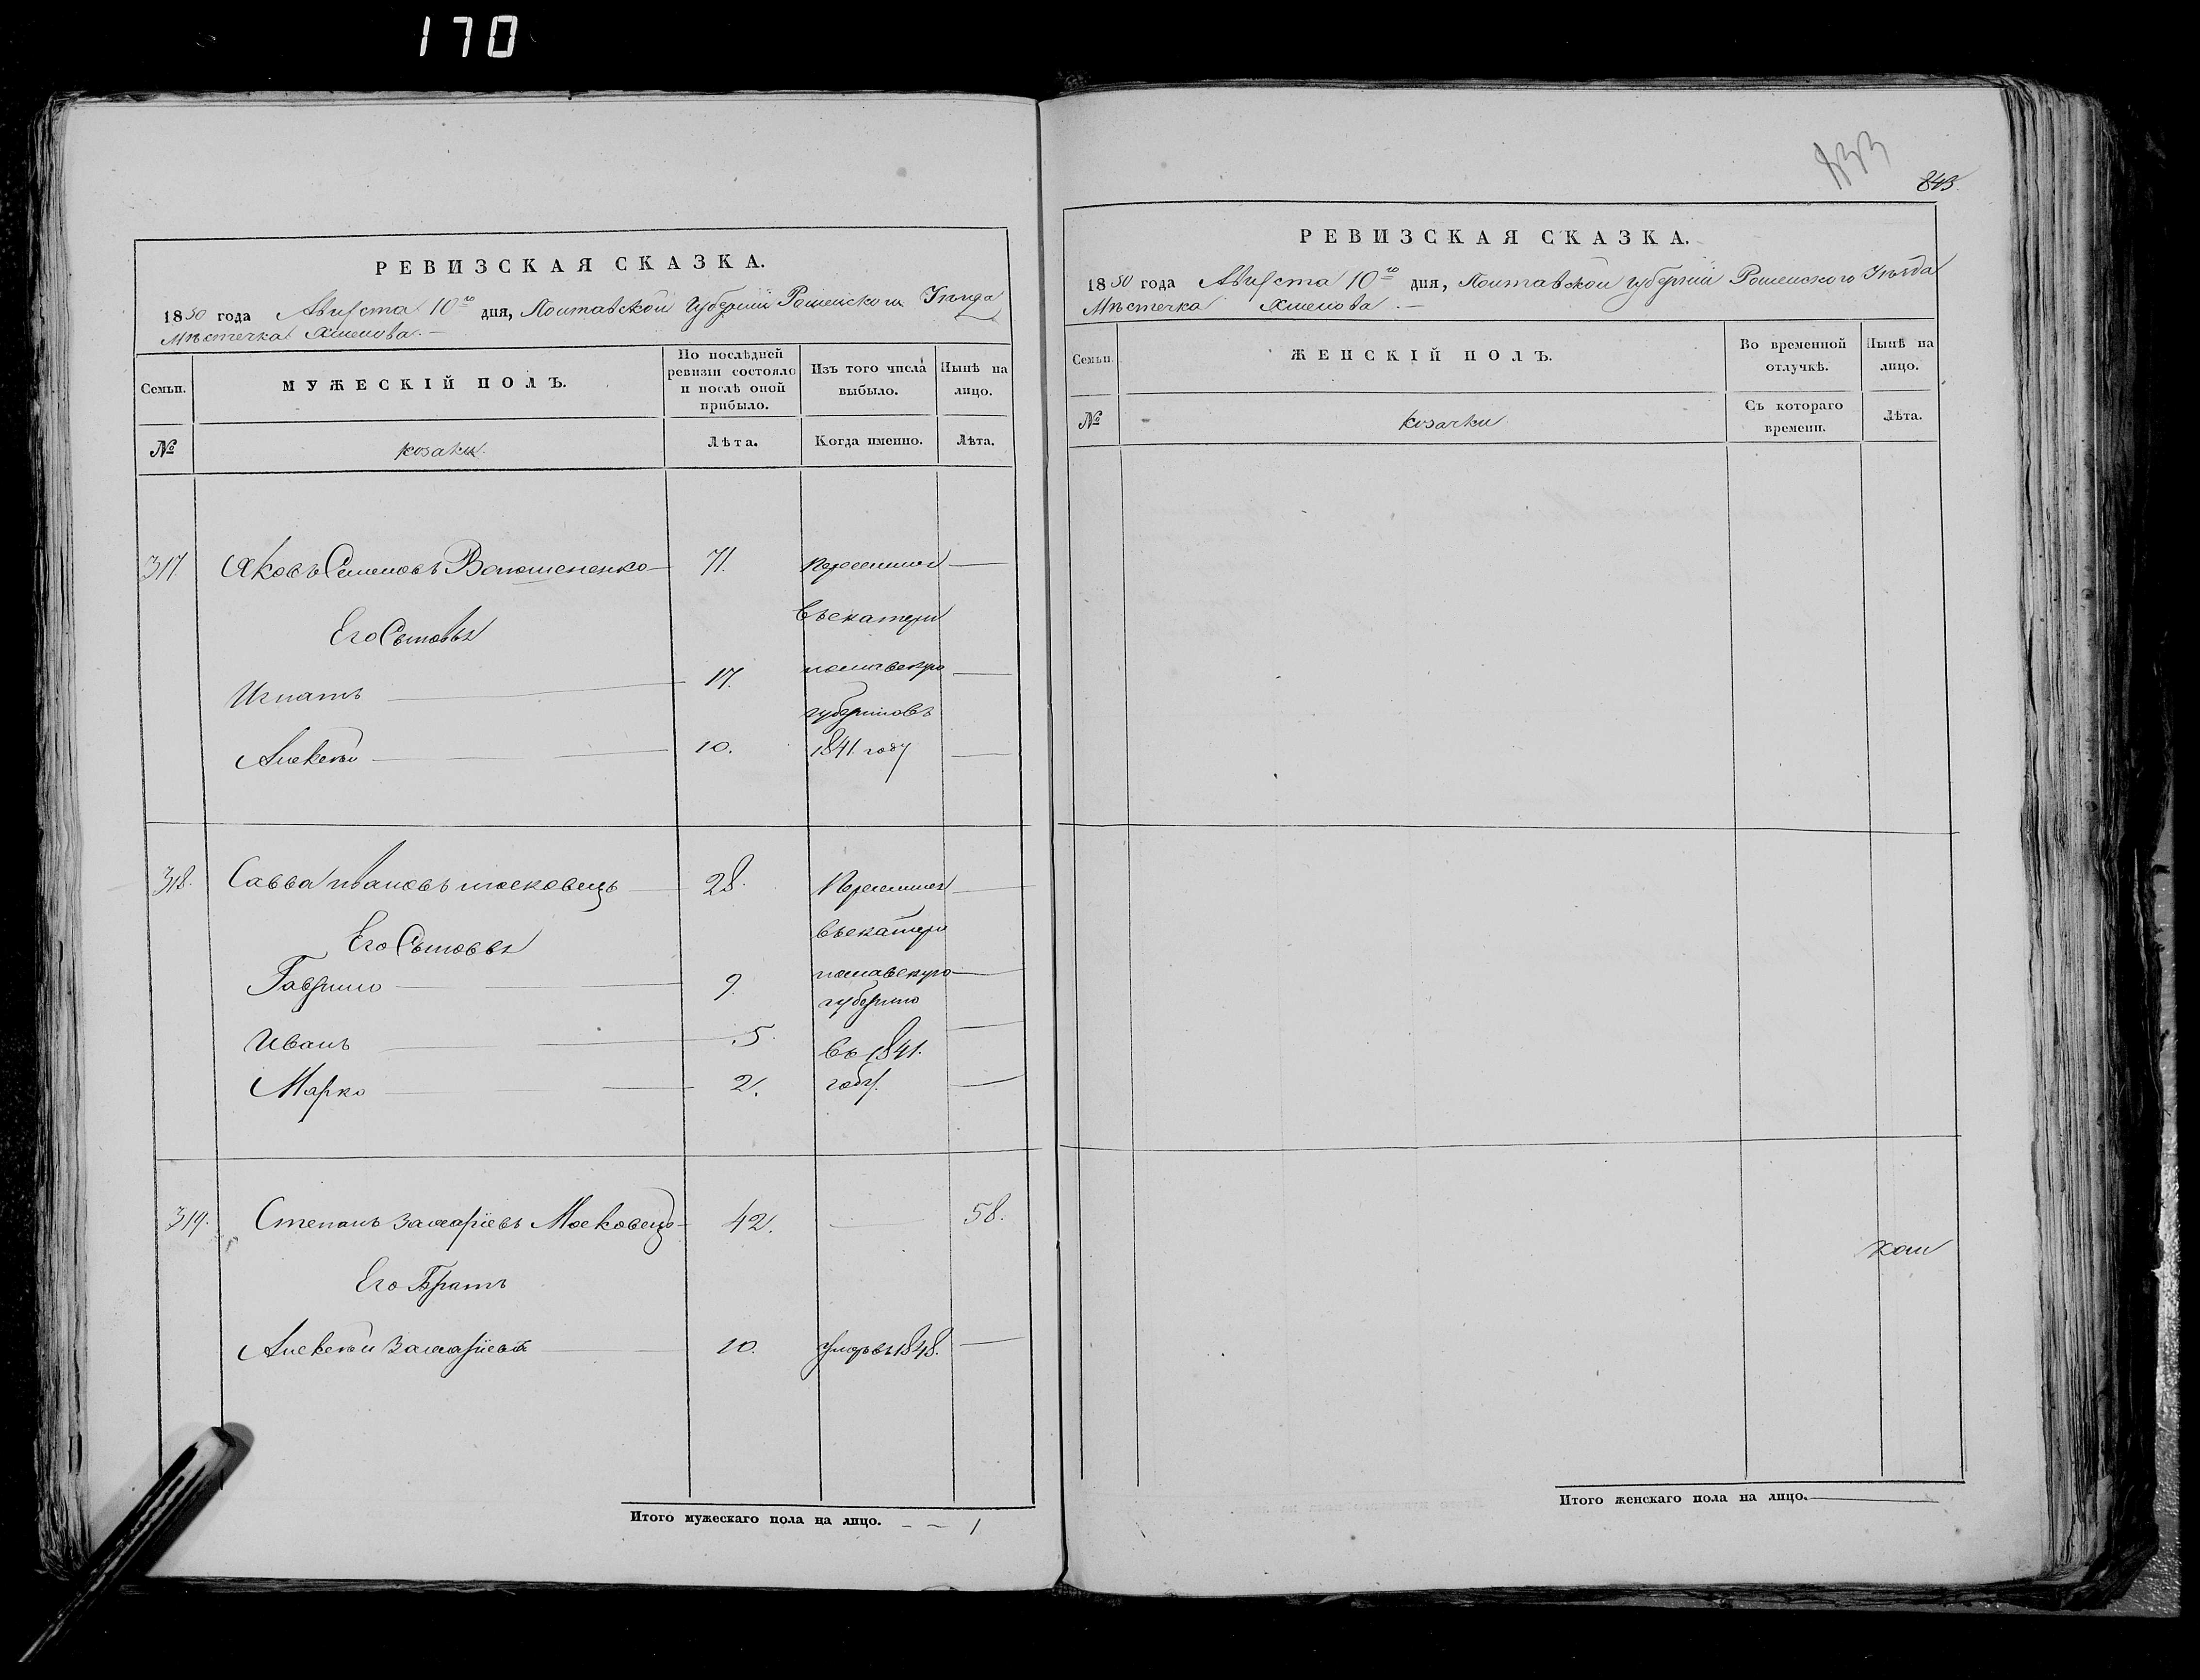 170
РЕВИЗСКАЯ СКАЗКА.
1850 года Августа 10го дня, Полтавской Губернии Роменского Уезда
Местечка Хмелова. —
Семьи.
МУЖЕСКІЙ ПОЛЪ.
По послѣдней ревизіи состояло и послѣ оной прибыло.
Изъ того числа выбыло.
Нынѣ на лицо.
№
козаки.
Лѣта.
Когда именно.
Лѣта.
317. Яковъ Семеновъ Волошененко 71. переселился
Его Сыновья въ екатери
Игнатъ 17. нославскую
губернію въ
Алексѣй 10. 1841 году
318. Савва ивановъ московецъ 28. Переселился
Его Сыновья въ екатери
Гаврило 9. нославскую
губернию
Иванъ 5. въ 1841.
Марко 2. году.
319. Степанъ захаріевъ Московецъ 42. 58.
Его Братъ
Алексѣй Захаріевъ 10. умеръ въ 1848.
Итого мужескаго пола на лицо. — — 1
843
РЕВИЗСКАЯ СКАЗКА.
1850 года Августа 10го дня, Полтавской губерніи Роменского Уѣзда
Мѣстечка Хмелова. —
Семьи.
ЖЕНСКІЙ ПОЛЪ.
Во временной отлучкѣ.
Нынѣ на лицо.
№
козачки
Съ котораго времени.
Лѣта.
Итого женскаго пола на лицо.